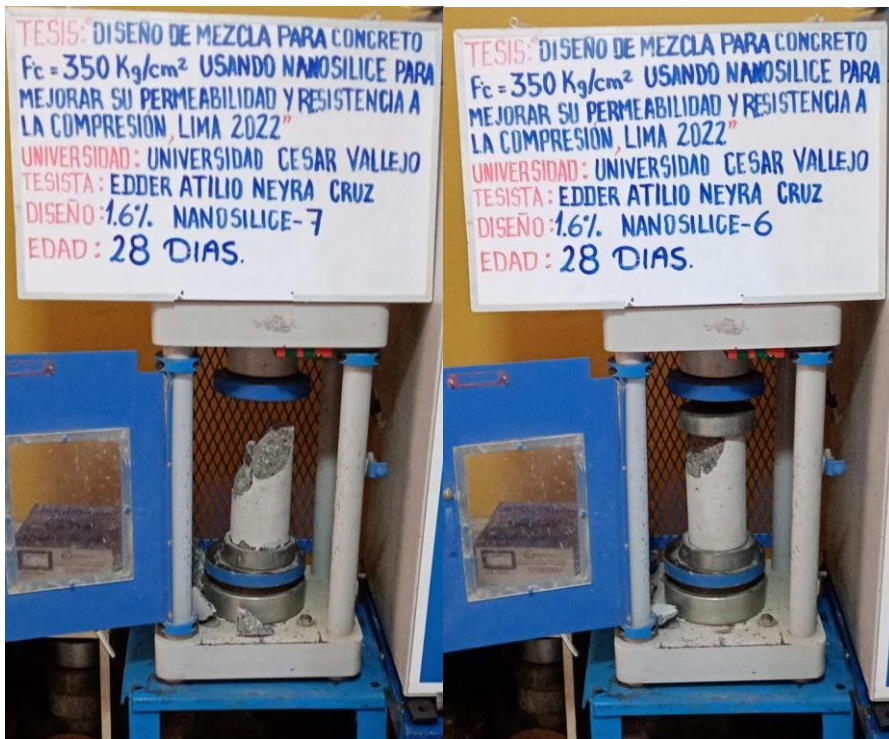 TESIS: "DISEÑO DE MEZCLA PARA CONCRETO
F'c = 350 Kg/cm² USANDO NANOSILICE PARA
MEJORAR SU PERMEABILIDAD Y RESISTENCIA A
LA COMPRESIÓN, LIMA 2022"
UNIVERSIDAD: UNIVERSIDAD CESAR VALLEJO
TESISTA: EDDER ATILIO NEYRA CRUZ
DISEÑO: 1.6% NANOSILICE-7
EDAD: 28 DIAS.
TESIS: "DISEÑO DE MEZCLA PARA CONCRETO
F'c = 350 Kg/cm² USANDO NANOSILICE PARA
MEJORAR SU PERMEABILIDAD Y RESISTENCIA A
LA COMPRESIÓN, LIMA 2022"
UNIVERSIDAD: UNIVERSIDAD CESAR VALLEJO
TESISTA: EDDER ATILIO NEYRA CRUZ
DISEÑO: 1.6% NANOSILICE-6
EDAD: 28 DIAS.